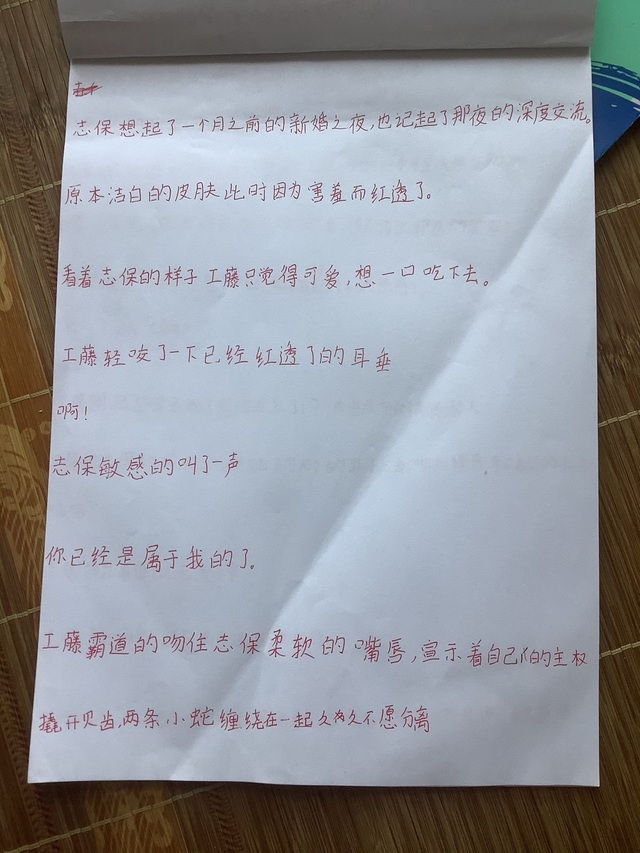 志保想起了一个月之前的新婚之夜,也记起了那夜的深度交流。
原本洁白的皮肤此时因为害羞而红透了。
看着志保的样子工藤只觉得可爱,想一口吃下去。
工藤轻咬了一下已经红透了的耳垂
啊!
志保敏感的叫了一声
你已经是属于我的了。
工藤霸道的吻住志保柔软的嘴唇,宣示着自己的主权
撬开贝齿,两条小蛇缠绕在一起久久不愿分离